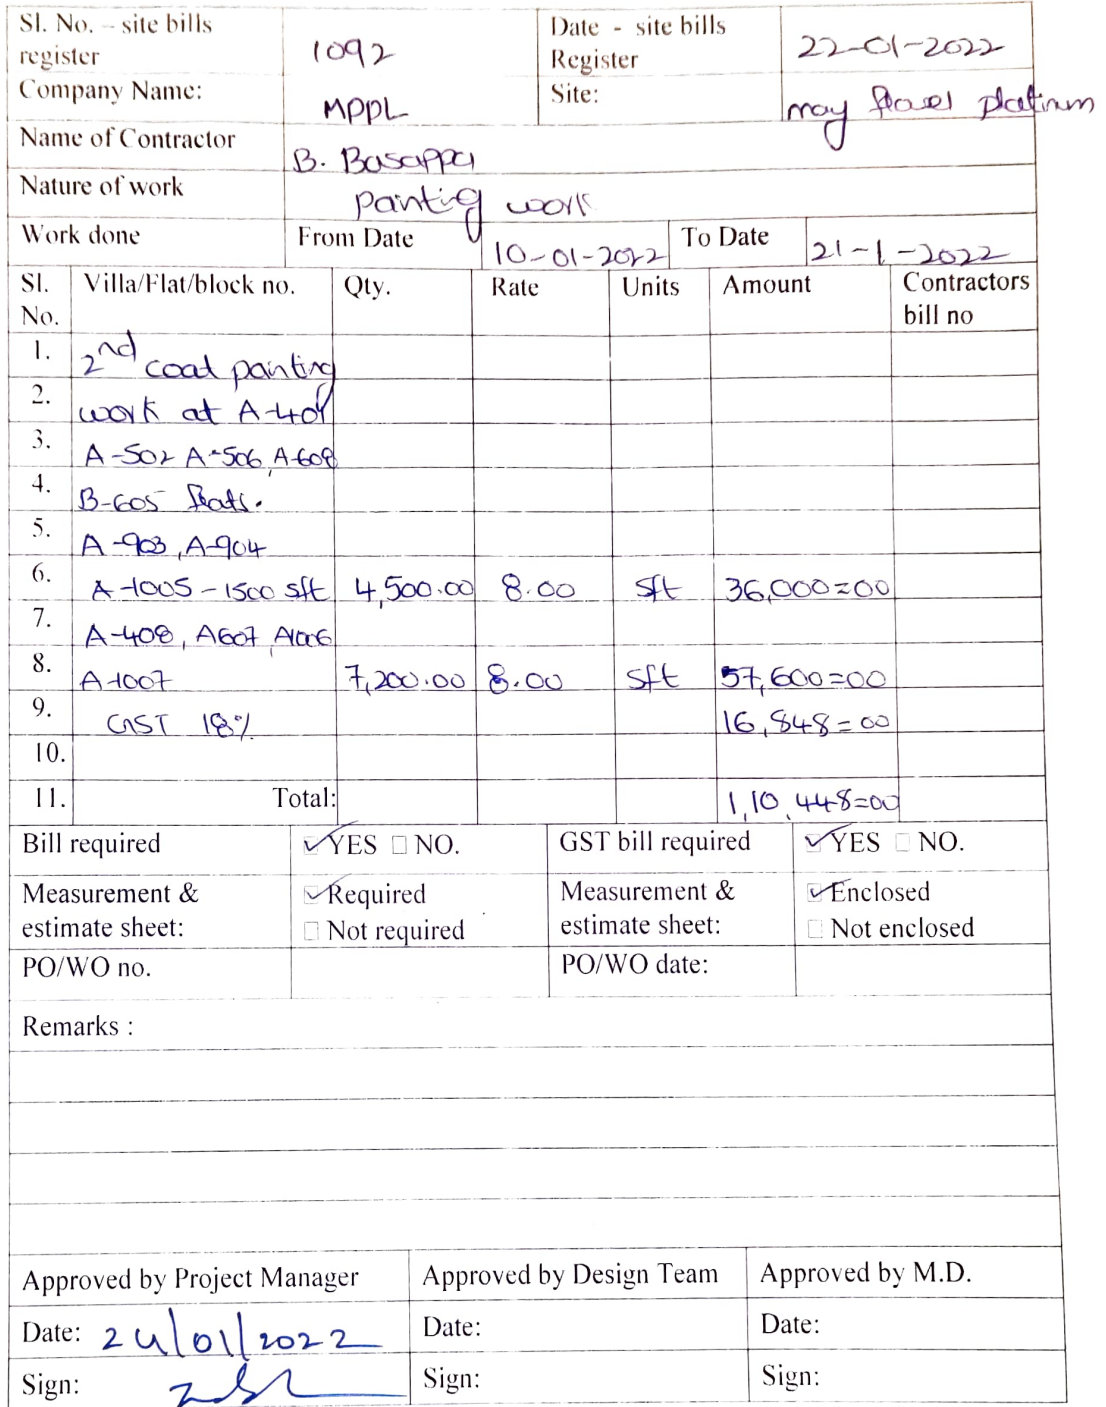 Sl. No. – site bills register 1092 Date - site bills Register 22-01-2022
Company Name: MPPL Site: may platinum
Name of Contractor B. Basappa
Nature of work Painting work
Work done From Date 10-01-2022 To Date 21-1-2022
Sl. No. Villa/Flat/block no. Qty. Rate Units Amount Contractors bill no
1. 2nd coat painting
2. work at A-401
3. A-502 A-506, A-608
4. B-605 flats.
5. A-903, A-904
6. A-1005 - 1500 sft 4,500.00 8.00 sft 36,000=00
7. A-408, A607, A1006
8. A-1007 7,200.00 8.00 sft 57,600=00
9. GST 18% 16,848=00
10.
11. Total: 1,10,448=00
Bill required YES NO. GST bill required YES NO.
Measurement & estimate sheet: Required Measurement & estimate sheet: Enclosed
Not required Not enclosed
PO/WO no. PO/WO date:
Remarks :
Approved by Project Manager Approved by Design Team Approved by M.D.
Date: 24/01/2022 Date: Date:
Sign: Sign: Sign: